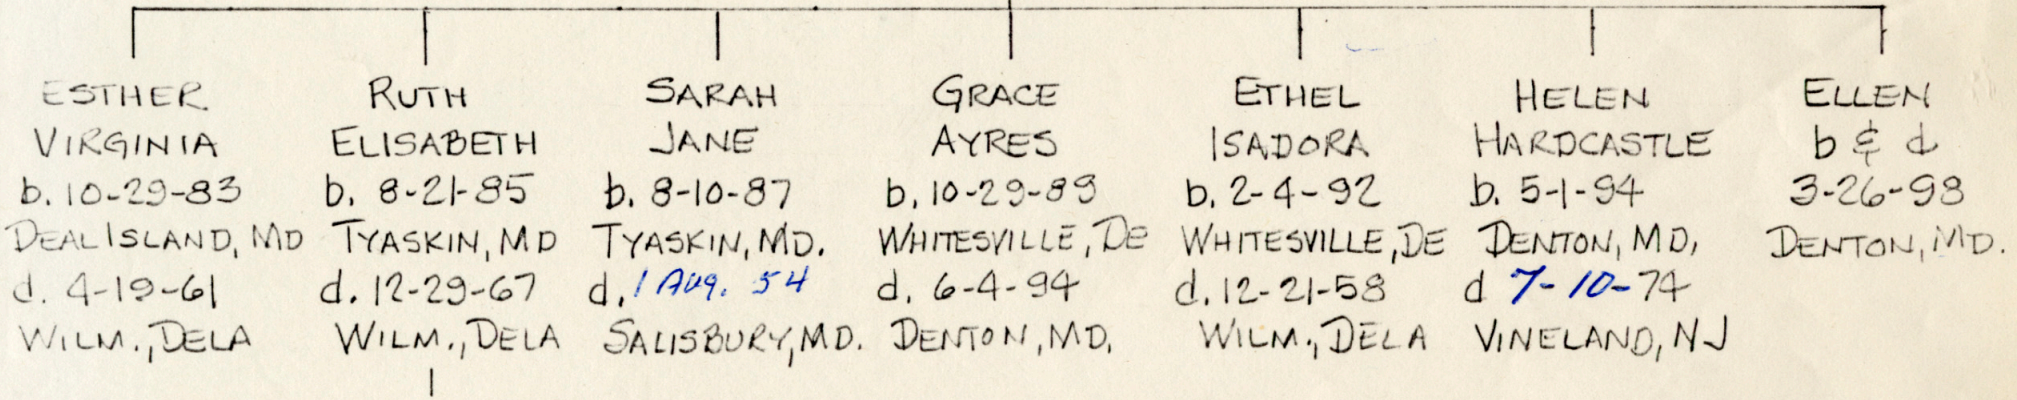 ESTHER
VIRGINIA
b. 10-29-83
DEAL ISLAND, MD
d. 4-19-61
WILM., DELA
RUTH
ELISABETH
b. 8-21-85
TYASKIN, MD
d. 12-29-67
WILM., DELA
SARAH
JANE
b. 8-10-87
TYASKIN, MD.
d. 1 Aug. 54
SALISBURY, MD.
GRACE
AYRES
b. 10-29-89
WHITESVILLE, DE
d. 6-4-94
DENTON, MD.
ETHEL
ISADORA
b. 2-4-92
WHITESVILLE, DE
d. 12-21-58
WILM., DELA
HELEN
HARDCASTLE
b. 5-1-94
DENTON, MD,
d 7-10-74
VINELAND, NJ
ELLEN
b & d
3-26-98
DENTON, MD.